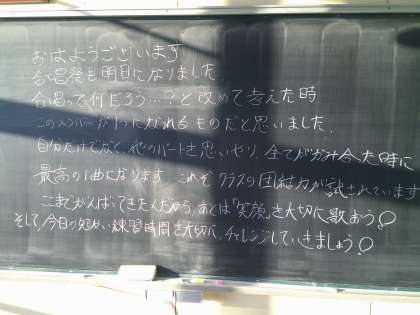 おはようございます
合唱祭も明日になりました
合唱って何だろう…?と改めて考えた時
このメンバーが1つになれるものだと思いました。
自分だけでなく他のパートを思いやり、全てがかみ合った時に
最高の1曲になります。これぞクラスの団結力が試されています
ここまでがんばってきたんだから、あとは「笑顔」を大切に歌おう!
そして、今日の短かい練習時間を大切に、チャレンジしていきましょう!